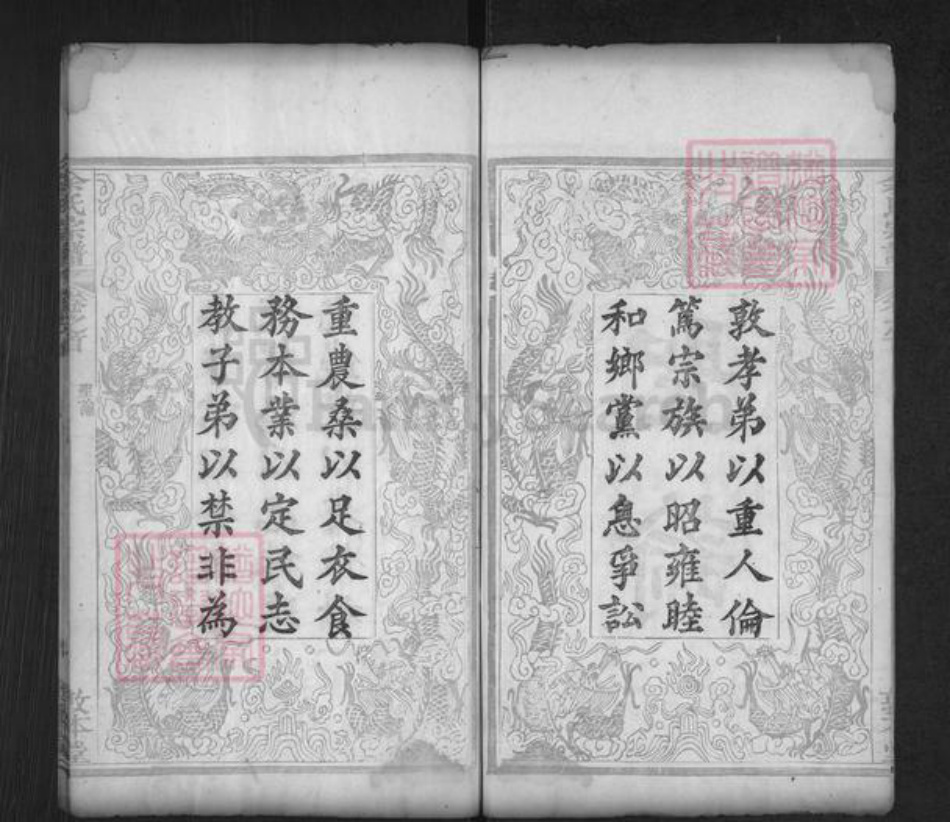 敦孝弟以重人倫
篤宗族以昭雍睦
和鄉黨以息爭訟
重農桑以足衣食
務本業以定民志
教子弟以禁非為